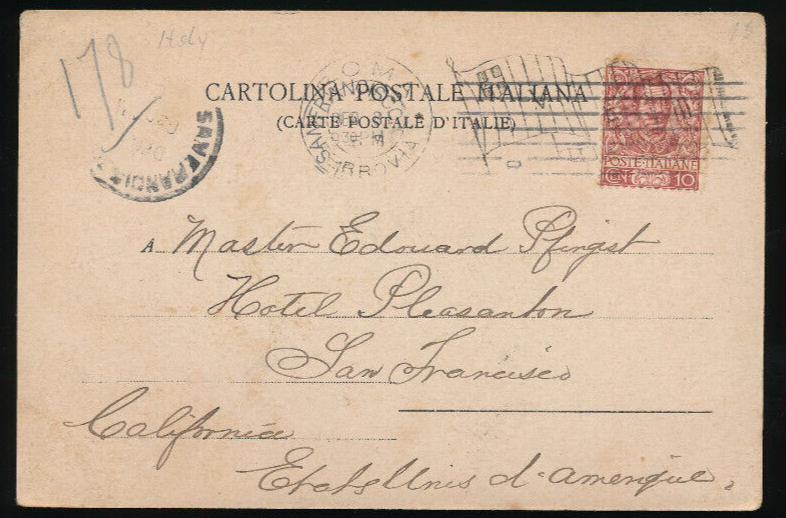 178
Italy
15
CARTOLINA POSTALE ITALIANA
(CARTE POSTALE D'ITALIE)
ROMA
FERROVIA
SAN FRANCISCO
SAN FRANCISC
POSTE·ITALIANE
10
A Master Edouard Pfingst
Hotel Pleasanton
San Francisco
California
Etats Unis d'amerique.